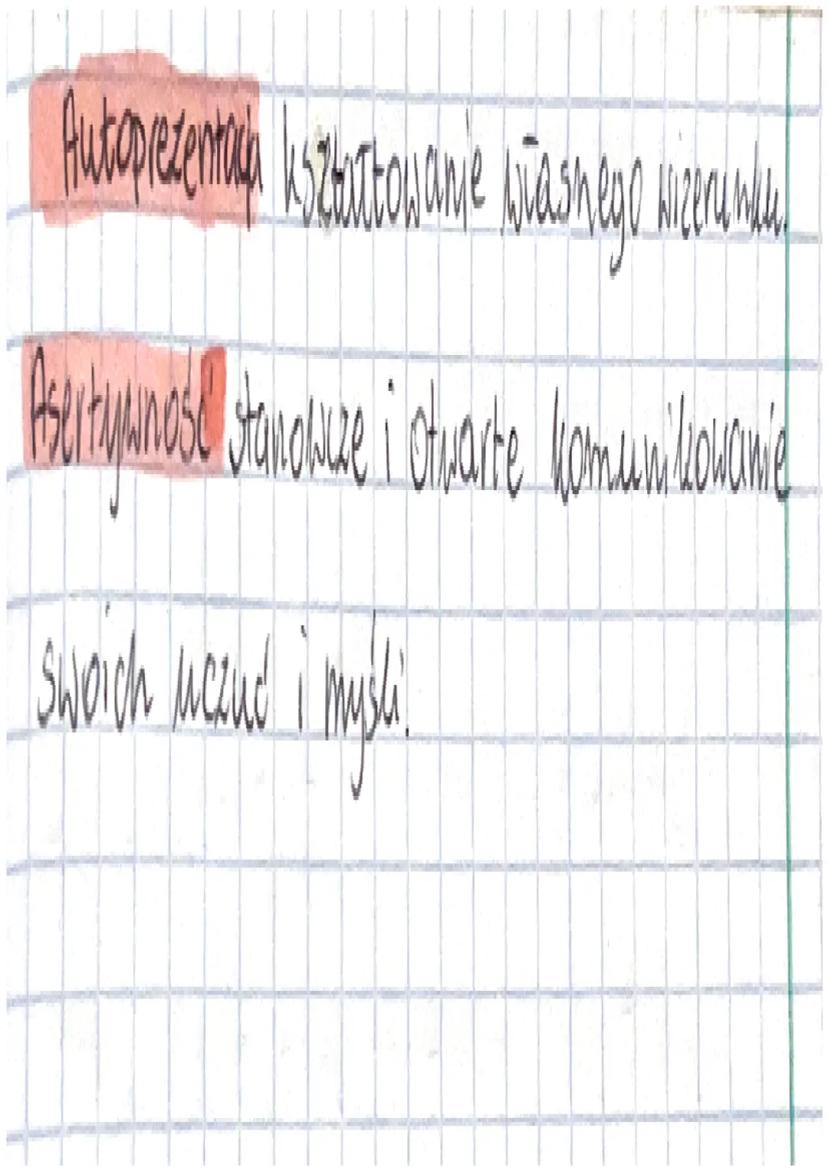 Autoprezentacja kształtowanie własnego wizerunku.
Asertywność stanowcze i otwarte komunikowanie
swoich uczuć i myśli.